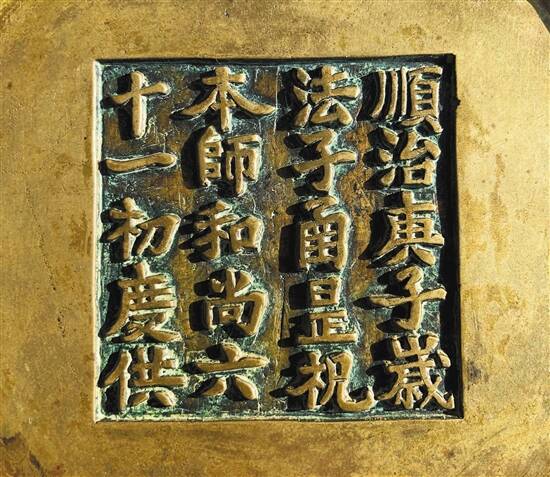 順治庚子歲
法子函昰祝
本師和尚六
十一初慶供